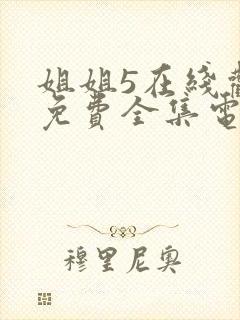 姐姐5在綫
免費全集電
穆里尼奥